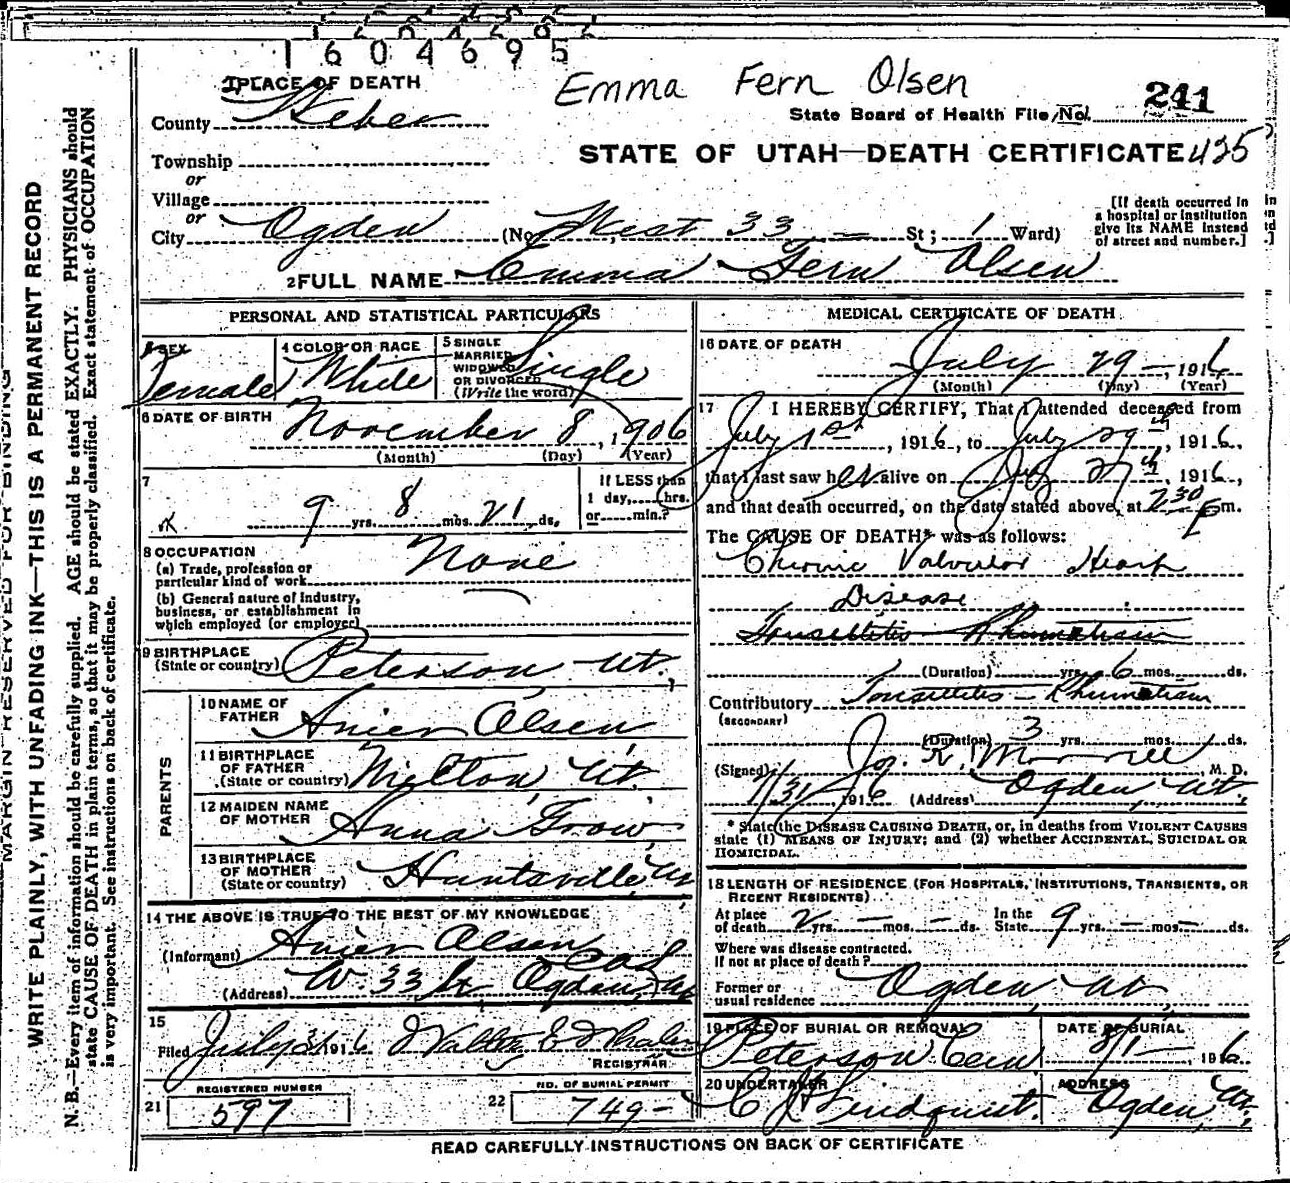 1604695
Emma Fern Olsen
1 PLACE OF DEATH
County Weber
State Board of Health File No. 241
Township
STATE OF UTAH—DEATH CERTIFICATE 425
or
Village
or
City Ogden (No. West 33 — St; 1 Ward)
[If death occurred in
a hospital or institution
give its NAME instead
of street and number.]
2 FULL NAME Emma Fern Olsen
PERSONAL AND STATISTICAL PARTICULARS
3 SEX Female
4 COLOR OR RACE White
5 SINGLE
MARRIED
WIDOWED
OR DIVORCED
(Write the word) Single
6 DATE OF BIRTH November 8, 1906
(Month) (Day) (Year)
7
9 yrs. 8 mos. 21 ds.
If LESS than
1 day, hrs.
or min.?
8 OCCUPATION
(a) Trade, profession or
particular kind of work None
(b) General nature of industry,
business, or establishment in
which employed (or employer)
9 BIRTHPLACE
(State or country) Peterson Ut.
PARENTS
10 NAME OF
FATHER Olsen
11 BIRTHPLACE
OF FATHER
(State or country) Milton, Ut.
12 MAIDEN NAME
OF MOTHER Anna Grow
13 BIRTHPLACE
OF MOTHER
(State or country) Huntsville, Ut
14 THE ABOVE IS TRUE TO THE BEST OF MY KNOWLEDGE
(Informant) Olsen
(Address) W. 33 St. Ogden, Ut
15
Filed July 31 1916 Walter E Whalen
REGISTRAR
REGISTERED NUMBER
21 597
NO. OF BURIAL PERMIT
22 749-
MEDICAL CERTIFICATE OF DEATH
16 DATE OF DEATH
July 29, 1916
(Month) (Day) (Year)
17 I HEREBY CERTIFY, That I attended deceased from
July 1st, 1916, to July 29th, 1916,
that I last saw her alive on July 27th, 1916,
and that death occurred, on the date stated above, at 2 30 P m.
The CAUSE OF DEATH* was as follows:
Chronic Valvular Heart
Disease
Tonsillitis Rhumatism
(Duration) yrs. 6 mos. ds.
Contributory Tonsillitis — Rhumatism
(SECONDARY)
(Duration) 3 yrs. mos. ds.
(Signed) Jos. R. Morrell, M. D.
7/31 1916 (Address) Ogden, Ut.
* State the DISEASE CAUSING DEATH, or, in deaths from VIOLENT CAUSES
state (1) MEANS OF INJURY; and (2) whether ACCIDENTAL, SUICIDAL OR
HOMICIDAL.
18 LENGTH OF RESIDENCE (FOR HOSPITALS, INSTITUTIONS, TRANSIENTS, OR
RECENT RESIDENTS)
At place
of death 2 yrs. — mos. — ds. In the
State 9 yrs. — mos. — ds.
Where was disease contracted.
If not at place of death?
Former or
usual residence Ogden, Ut.
19 PLACE OF BURIAL OR REMOVAL
Peterson Cem
DATE OF BURIAL
8/1 — , 1916
20 UNDERTAKER
C J Lindquist
ADDRESS
Ogden, Ut.
READ CAREFULLY INSTRUCTIONS ON BACK OF CERTIFICATE
MARGIN RESERVED FOR BINDING
WRITE PLAINLY, WITH UNFADING INK—THIS IS A PERMANENT RECORD
N. B.—Every item of information should be carefully supplied. AGE should be stated EXACTLY. PHYSICIANS should
state CAUSE OF DEATH in plain terms, so that it may be properly classified. Exact statement of OCCUPATION
is very important. See instructions on back of certificate.